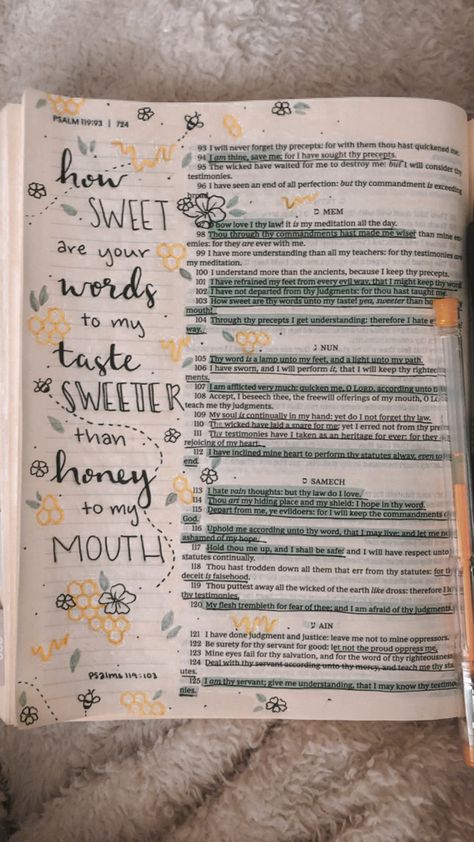 PSALM 119:93 | 724
how
SWEET
are your
words
to my
taste
SWEETER
than
honey
to my
MOUTH
Psalms 119:103
93 I will never forget thy precepts: for with them thou hast quickened me.
94 I am thine, save me; for I have sought thy precepts.
95 The wicked have waited for me to destroy me: but I will consider thy
testimonies.
96 I have seen an end of all perfection: but thy commandment is exceeding
MEM
how love I thy law! it is my meditation all the day.
98 Thou through thy commandments hast made me wiser than mine en-
emies: for they are ever with me.
99 I have more understanding than all my teachers: for thy testimonies are
my meditation.
100 I understand more than the ancients, because I keep thy precepts.
101 I have refrained my feet from every evil way, that I might keep thy word.
102 I have not departed from thy judgments: for thou hast taught me.
103 How sweet are thy words unto my taste! yea, sweeter than
mouth!
104 Through thy precepts I get understanding: therefore I hate
way.
NUN
105 Thy word is a lamp unto my feet, and a light unto my path.
106 I have sworn, and I will perform it, that I will keep thy righteous
ments.
107 I am afflicted very much: quicken me, O LORD, according unto
108 Accept, I beseech thee, the freewill offerings of my mouth, O
teach me thy judgments.
109 My soul is continually in my hand: yet do I not forget thy law.
110 The wicked have laid a snare for me: yet I erred not from thy
111 Thy testimonies have I taken as an heritage for ever: for they
rejoicing of my heart.
112 I have inclined mine heart to perform thy statutes alway, even
end.
SAMECH
113 I hate vain thoughts: but thy law do I love.
114 Thou art my hiding place and my shield: I hope in thy word.
115 Depart from me, ye evildoers: for I will keep the commandments
God.
116 Uphold me according unto thy word, that I may live: and let me not
ashamed of my hope.
117 Hold thou me up, and I shall be safe: and I will have respect unto
statutes continually.
118 Thou hast trodden down all them that err from thy statutes: for
deceit is falsehood.
119 Thou puttest away all the wicked of the earth like dross: therefore I
thy testimonies.
120 My flesh trembleth for fear of thee; and I am afraid of thy judgments.
AIN
121 I have done judgment and justice: leave me not to mine oppressors.
122 Be surety for thy servant for good: let not the proud oppress me.
123 Mine eyes fail for thy salvation, and for the word of thy righteousness.
124 Deal with thy servant according unto thy mercy, and teach me thy stat-
utes.
125 I am thy servant; give me understanding, that I may know thy testimo-
nies.